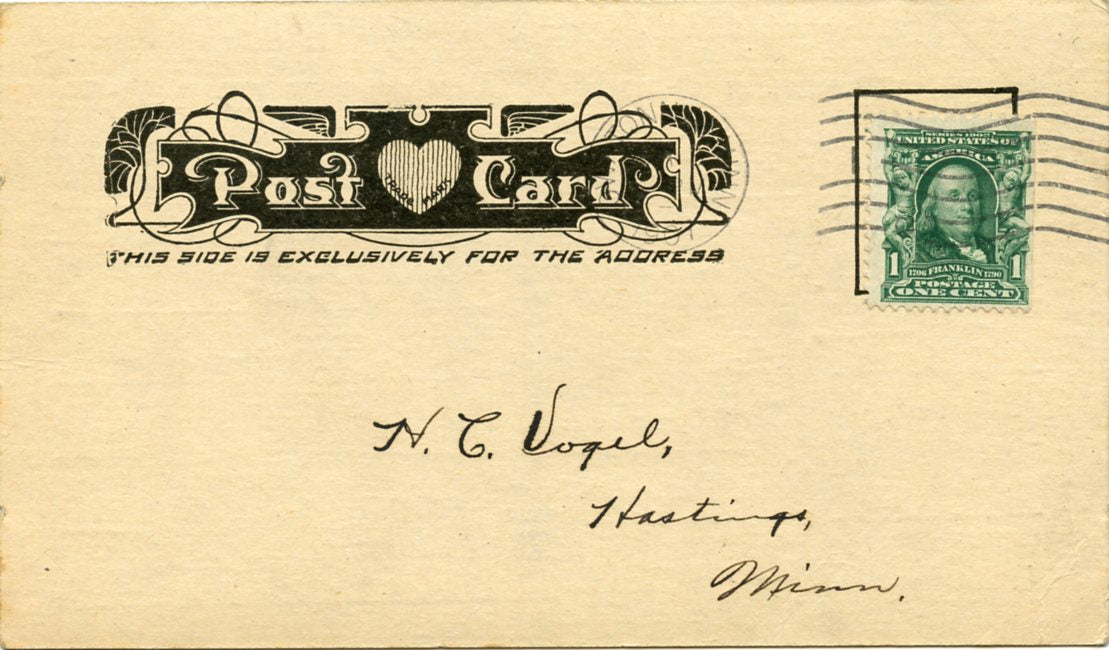 Post Card
TRADE MARK
THIS SIDE IS EXCLUSIVELY FOR THE ADDRESS
SERIES 1902
UNITED STATES OF
AMERICA
1 1706 FRANKLIN 1790 1
POSTAGE
ONE CENT
H. C. Vogel,
Hastings,
Minn.